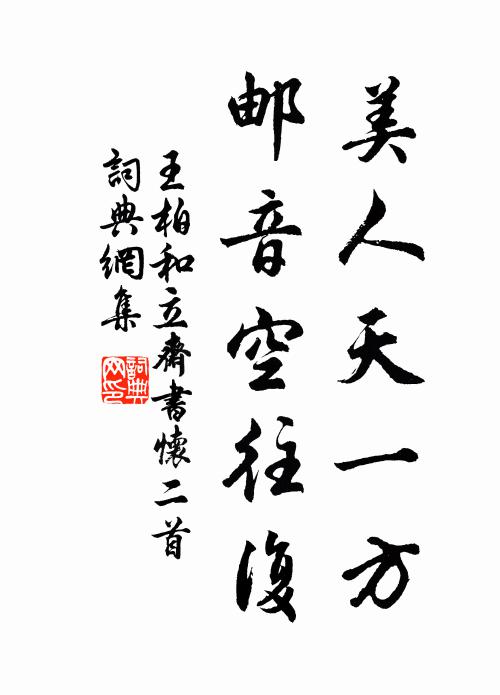 美人天一方
邮音空往復
王柏和立齋書懷二首
詞典網集
詞典
网印